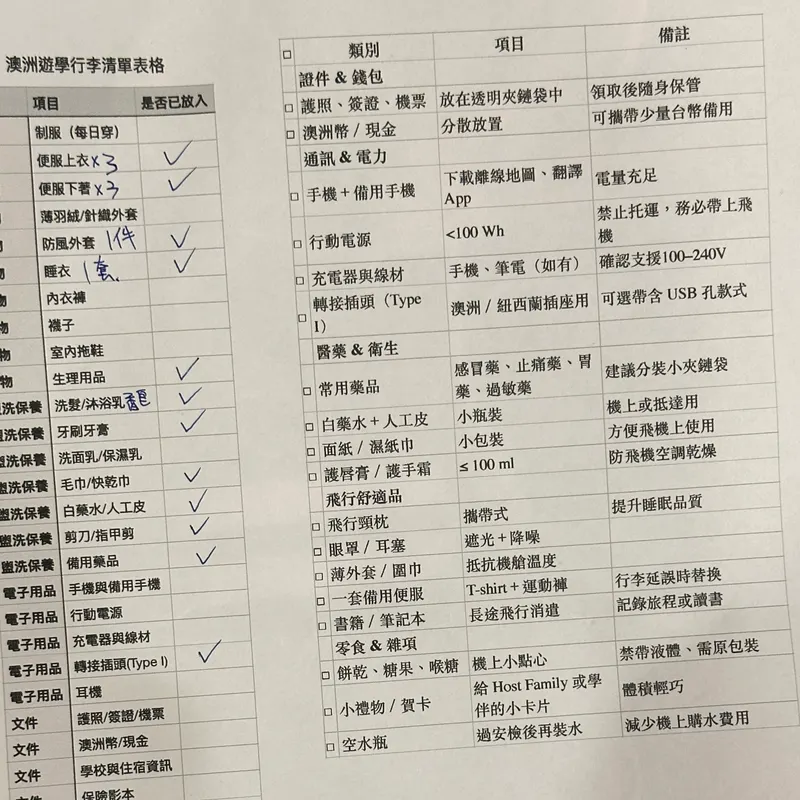 澳洲遊學行李清單表格
項目 是否已放入
制服（每日穿）
便服上衣x3 ✓
便服下著x3 ✓
薄羽絨/針織外套
防風外套 1件 ✓
物 睡衣 1套 ✓
物 內衣褲
物 襪子
物 室內拖鞋
物 生理用品 ✓
盥洗保養 洗髮/沐浴乳 ✓
盥洗保養 牙刷牙膏 ✓
盥洗保養 洗面乳/保濕乳
盥洗保養 毛巾/快乾巾 ✓
盥洗保養 白藥水/人工皮 ✓
盥洗保養 剪刀/指甲剪 ✓
盥洗保養 備用藥品 ✓
電子用品 手機與備用手機
電子用品 行動電源
電子用品 充電器與線材
電子用品 轉接插頭(Type I) ✓
電子用品 耳機
文件 護照/簽證/機票
文件 澳洲幣/現金
文件 學校與住宿資訊
文件 保險影本
□ 類別 項目 備註
證件 & 錢包
□ 護照、簽證、機票 放在透明夾鏈袋中 領取後隨身保管
□ 澳洲幣 / 現金 分散放置 可攜帶少量台幣備用
通訊 & 電力
□ 手機 + 備用手機 下載離線地圖、翻譯
App 電量充足
□ 行動電源 <100 Wh 禁止托運，務必帶上飛
機
□ 充電器與線材 手機、筆電（如有） 確認支援100–240V
□ 轉接插頭（Type
I） 澳洲 / 紐西蘭插座用 可選帶含 USB 孔款式
醫藥 & 衛生
□ 常用藥品 感冒藥、止痛藥、胃
藥、過敏藥 建議分裝小夾鏈袋
□ 白藥水 + 人工皮 小瓶裝 機上或抵達用
□ 面紙 / 濕紙巾 小包裝 方便飛機上使用
□ 護唇膏 / 護手霜 ≤ 100 ml 防飛機空調乾燥
飛行舒適品
□ 飛行頸枕 攜帶式 提升睡眠品質
□ 眼罩 / 耳塞 遮光 + 降噪
□ 薄外套 / 圍巾 抵抗機艙溫度
□ 一套備用便服 T-shirt + 運動褲 行李延誤時替換
□ 書籍 / 筆記本 長途飛行消遣 記錄旅程或讀書
零食 & 雜項
□ 餅乾、糖果、喉糖 機上小點心 禁帶液體、需原包裝
□ 小禮物 / 賀卡 給 Host Family 或學
伴的小卡片 體積輕巧
□ 空水瓶 過安檢後再裝水 減少機上購水費用